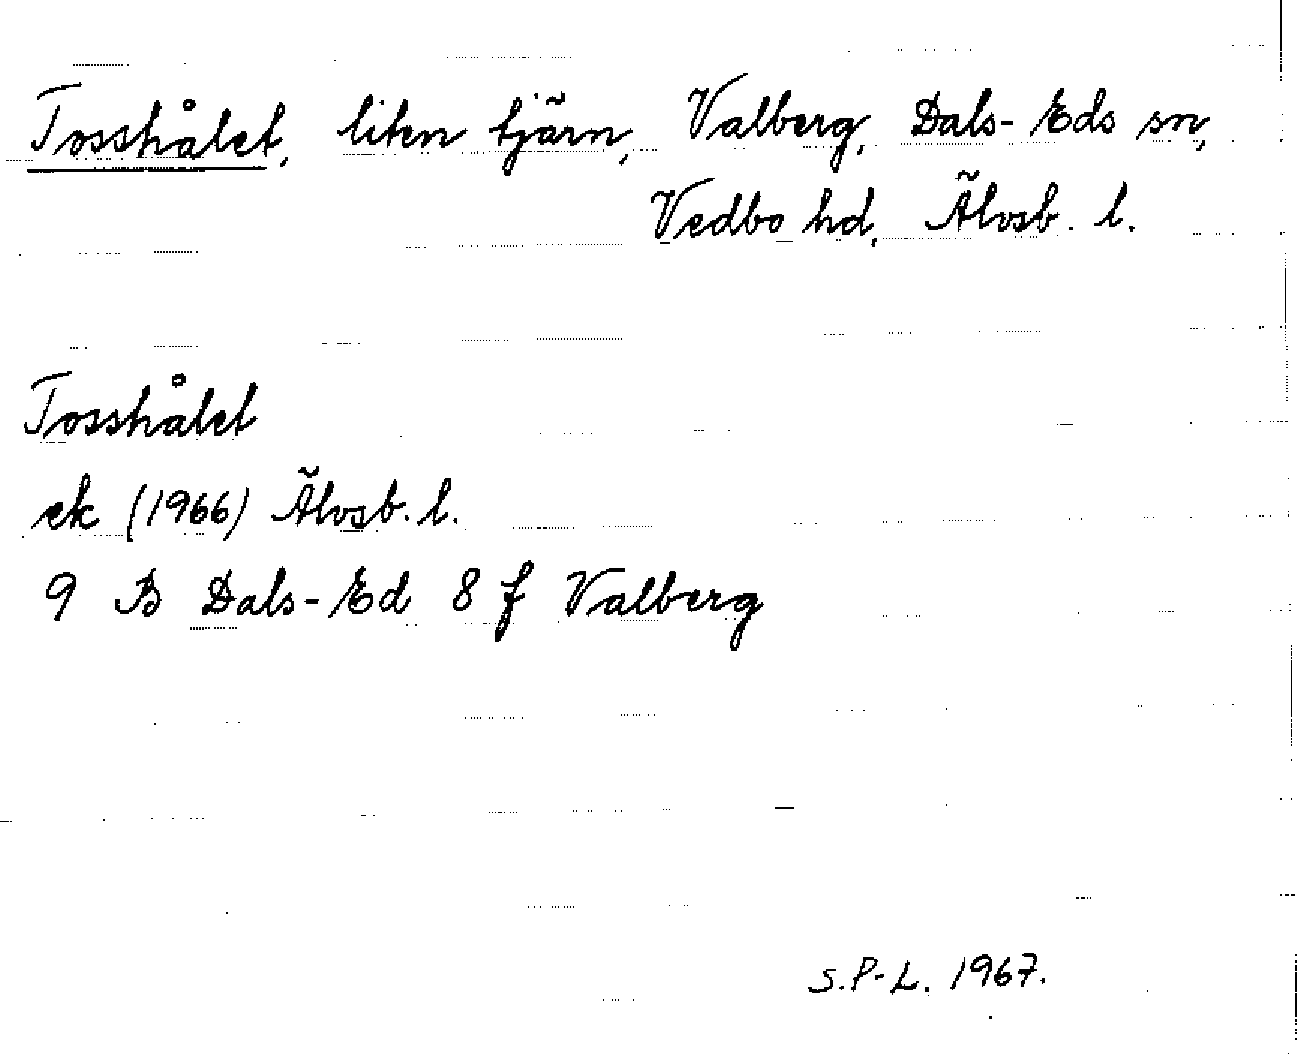 Tosshålet, liten tjärn, Valberg, Dals-Eds sn,
Vedbo hd, Älvsb. l.
Tosshålet
ek (1966) Älvsb. l.
9 B Dals-Ed 8 f Valberg
S.P-L. 1967.